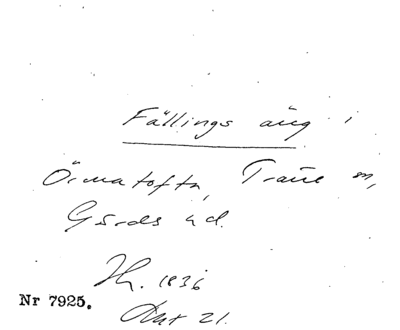 Fällings äng i
Örmatofta, Trane sn,
Gärds hd.
Lh. 1836
Nr 7925.
Akt 21.